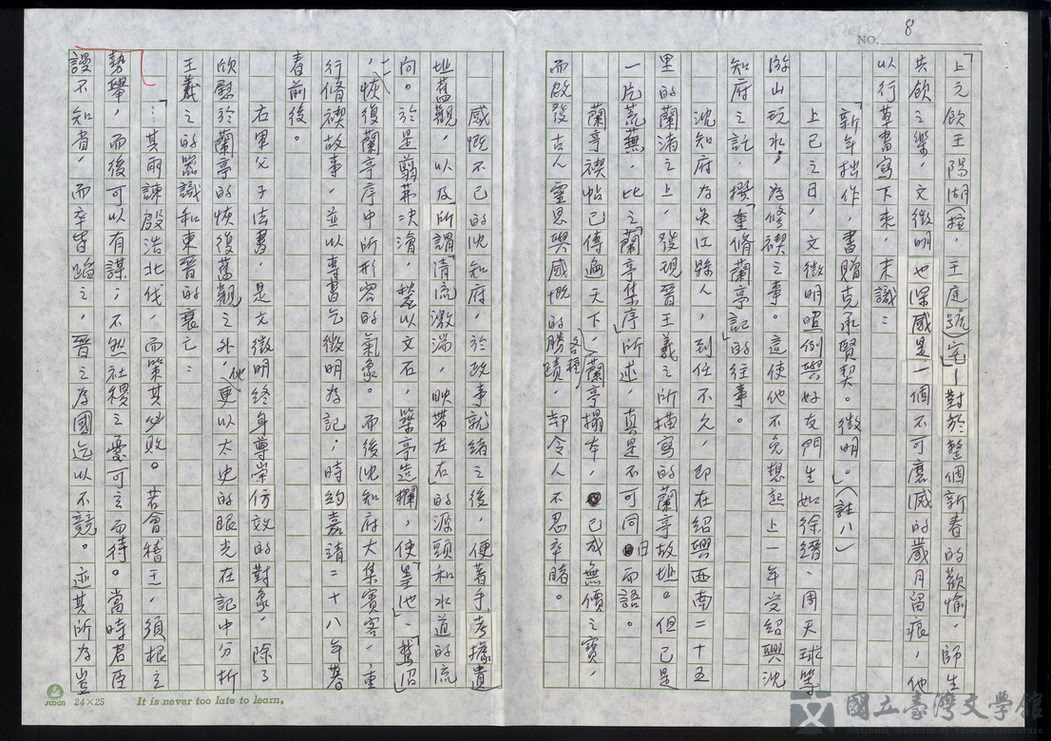 NO. 8
「上元飲王陽湖(按，王庭號)宅」——對於整個新春的歡愉，師生
共飲之樂，文徵明也深感是一個不可磨滅的歲月留痕，他
以行草書寫下來，末識：
「新年拙作，書贈克承賢契。徵明。」(註八)
上巳之日，文徵明照例與好友門生如徐縉、周天球等
游山玩水，為修禊之事。這使他不免想起上一年受紹興沈
知府之託，撰「重脩蘭亭記」的往事。
沈知府為吳江縣人，到任不久，即在紹興西南二十五
里的蘭渚之上，發現晉王羲之所描寫的蘭亭故址。但已是
一片荒蕪，比之「蘭亭集序」所述，真是不可同日而語。
蘭亭禊帖已傳遍天下，各種蘭亭搨本，已成無價之寶，
而啟發古人靈思與感慨的勝蹟，却令人不忍卒睹。
感慨不已的沈知府，於政事就緒之後，便著手考據遺
址舊觀，以及所謂「清流激湍，映帶左右」的源頭和水道的流
向。於是翦茀決澮，甃以文石，築亭造欄，使「墨池」、「鵝沼」
，恢復蘭亭序中所形容的氣象。而後沈知府大集賓客，重
行脩禊故事，並以專書乞徵明為記；時約嘉靖二十八年暮
春前後。
右軍父子法書，是文徵明終身尊崇仿效的對象，除了
欣慰於蘭亭的恢復舊觀之外，他更以太史的眼光在記中分析
王羲之的器識和東晉的衰亡：
「…其所諫殷浩北伐，而策其必敗。若會稽王，須根立
勢舉，而後可以有謀；不然社稷之憂可立而待。當時君臣
謾不知省，而卒皆蹈之，晉之為國迄以不競。迹其所為豈
24×25 It is never too late to learn,
國立臺灣文學館
National Museum of Taiwan Literature